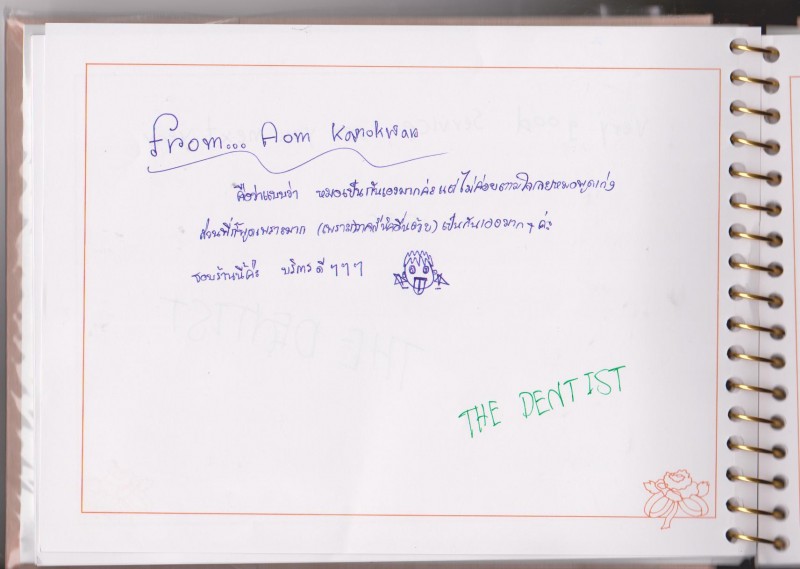 From... Aom Kanokwan
คือว่าแบบว่า หมอเป็นกันเองมากค่ะ แต่ไม่ค่อยตามใจเลย หมอพูดเก่ง
ส่วนพี่ก็พูดเพราะมาก เป็นกันเองมากๆ ค่ะ
ชอบร้านนี้ค่ะ บริการดี ๆ ๆ ๆ
THE DENTIST